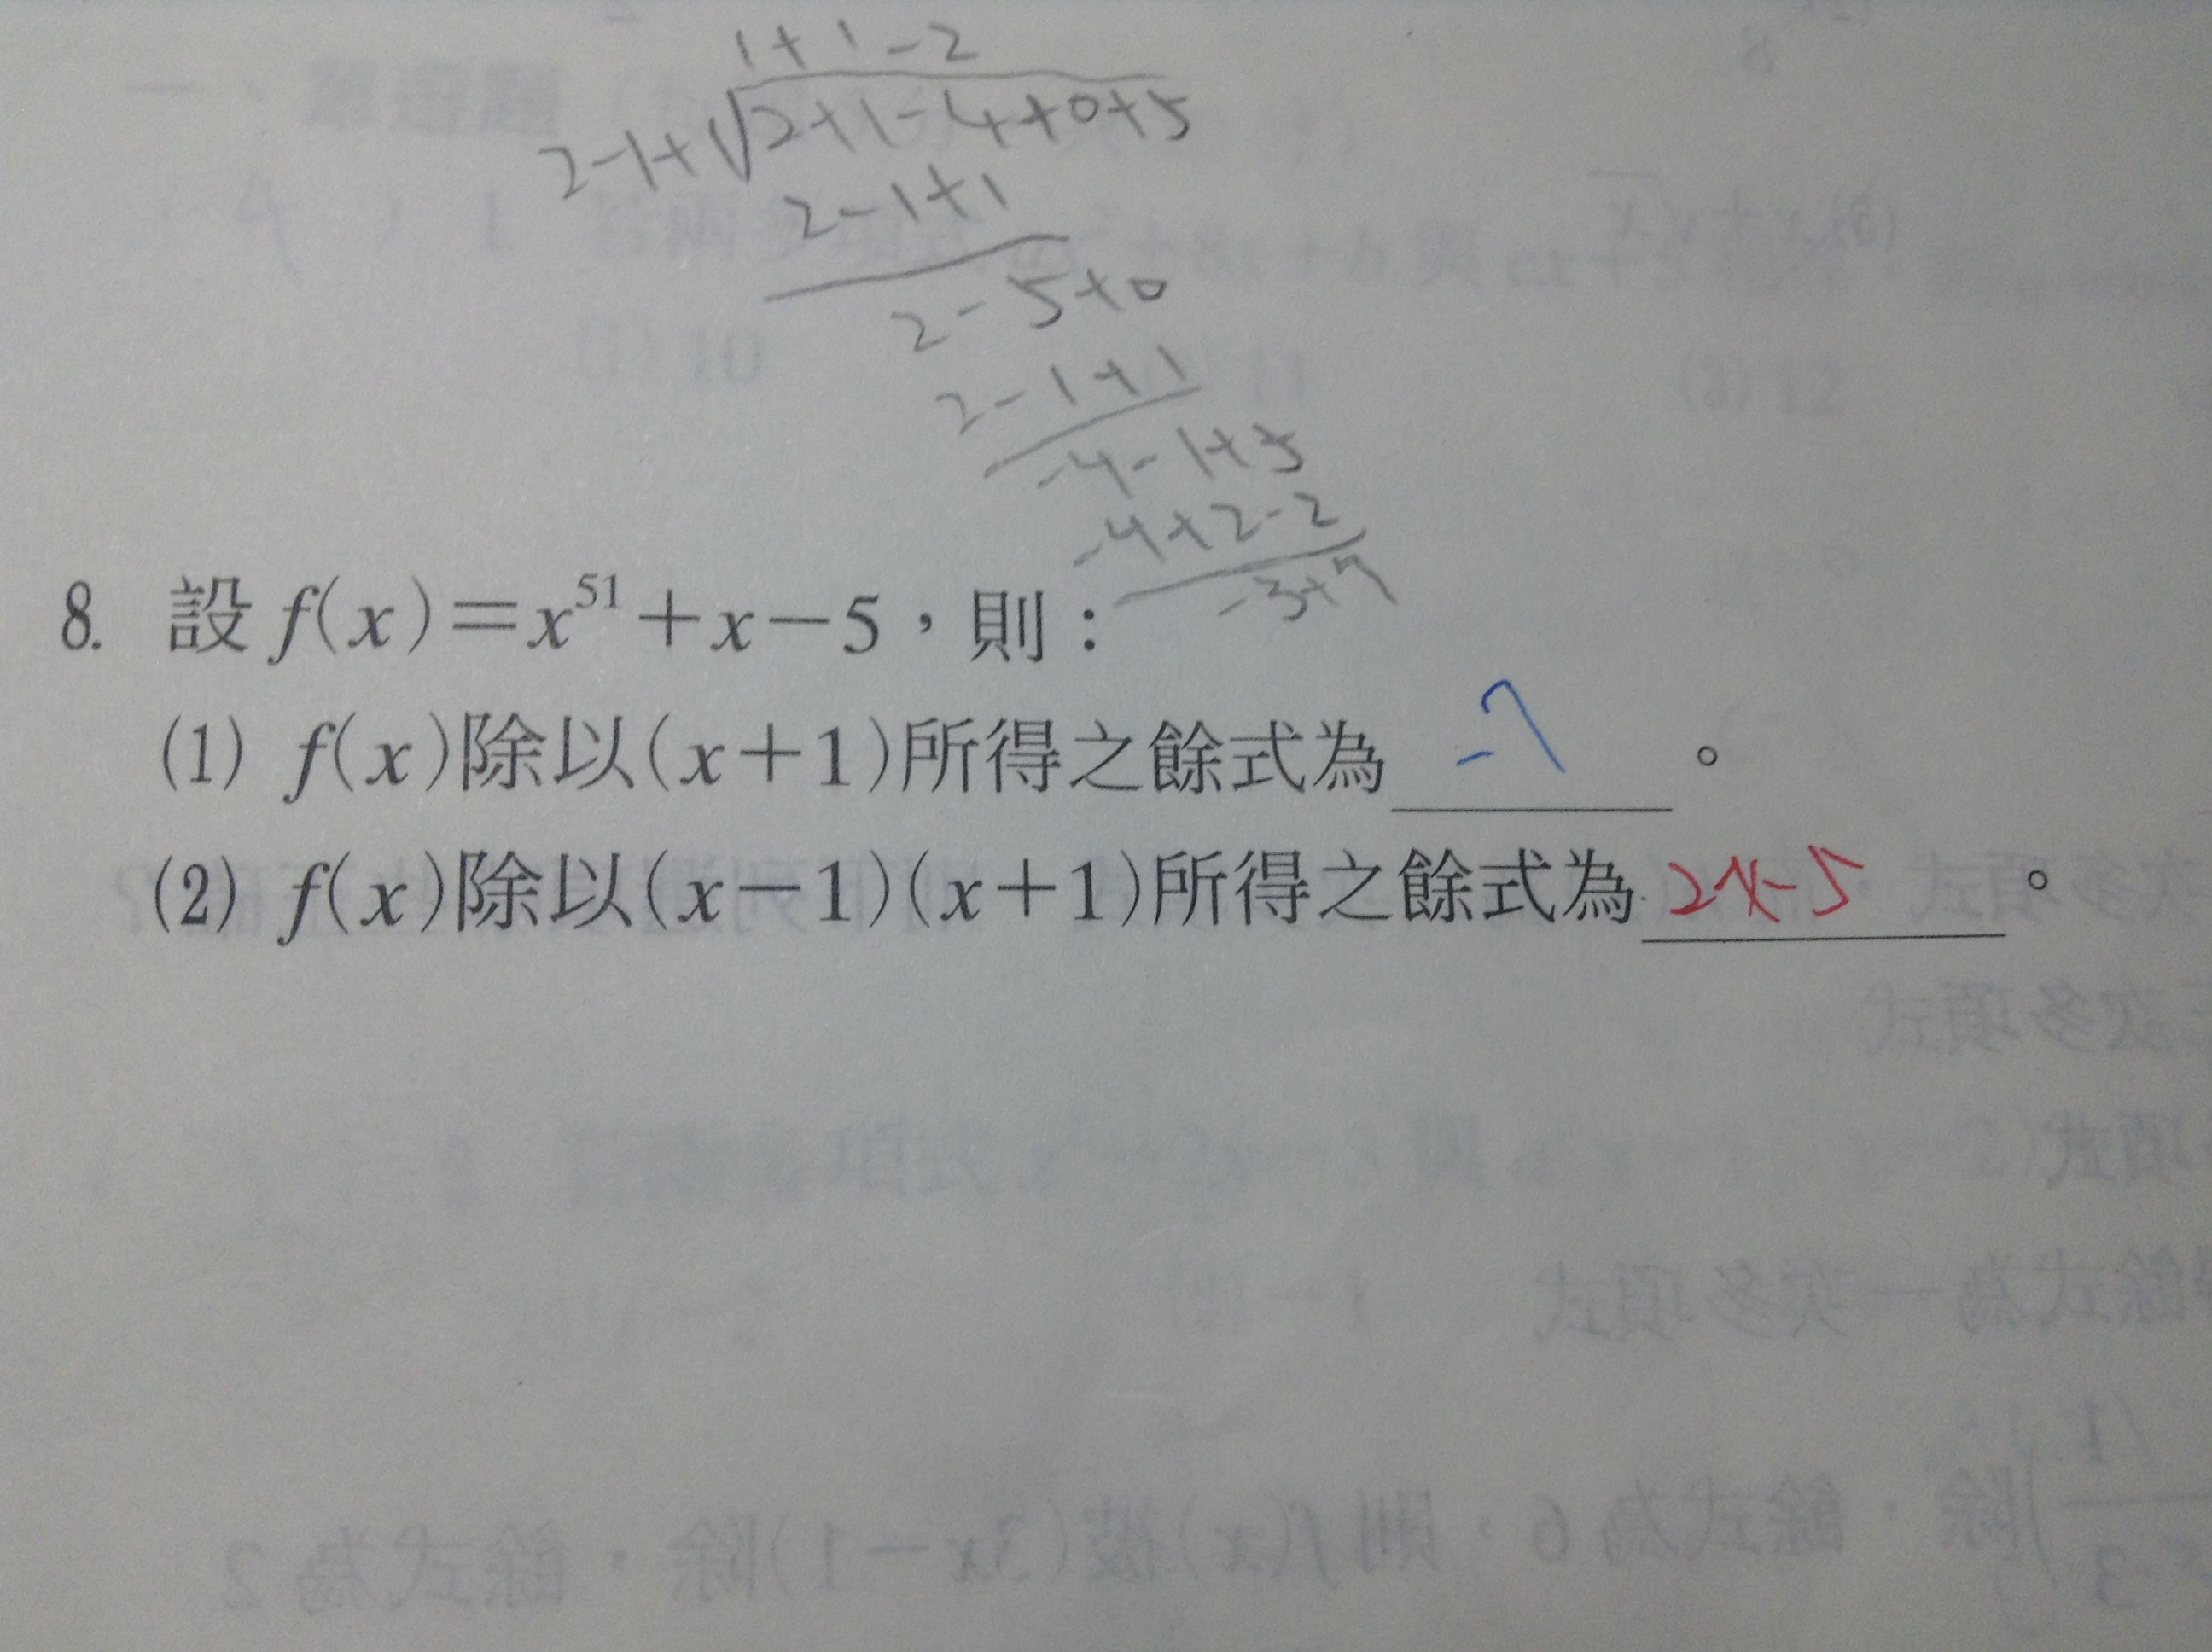 1+1-2
2-1+1√2+1-4+0+5
2-1+1
2-5+0
2-1+1
-4-1+5
-4+2-2
-3+7
8. 設 f(x)=x⁵¹+x-5，則：
(1) f(x)除以(x+1)所得之餘式為 -7 。
(2) f(x)除以(x-1)(x+1)所得之餘式為 2x-5 。